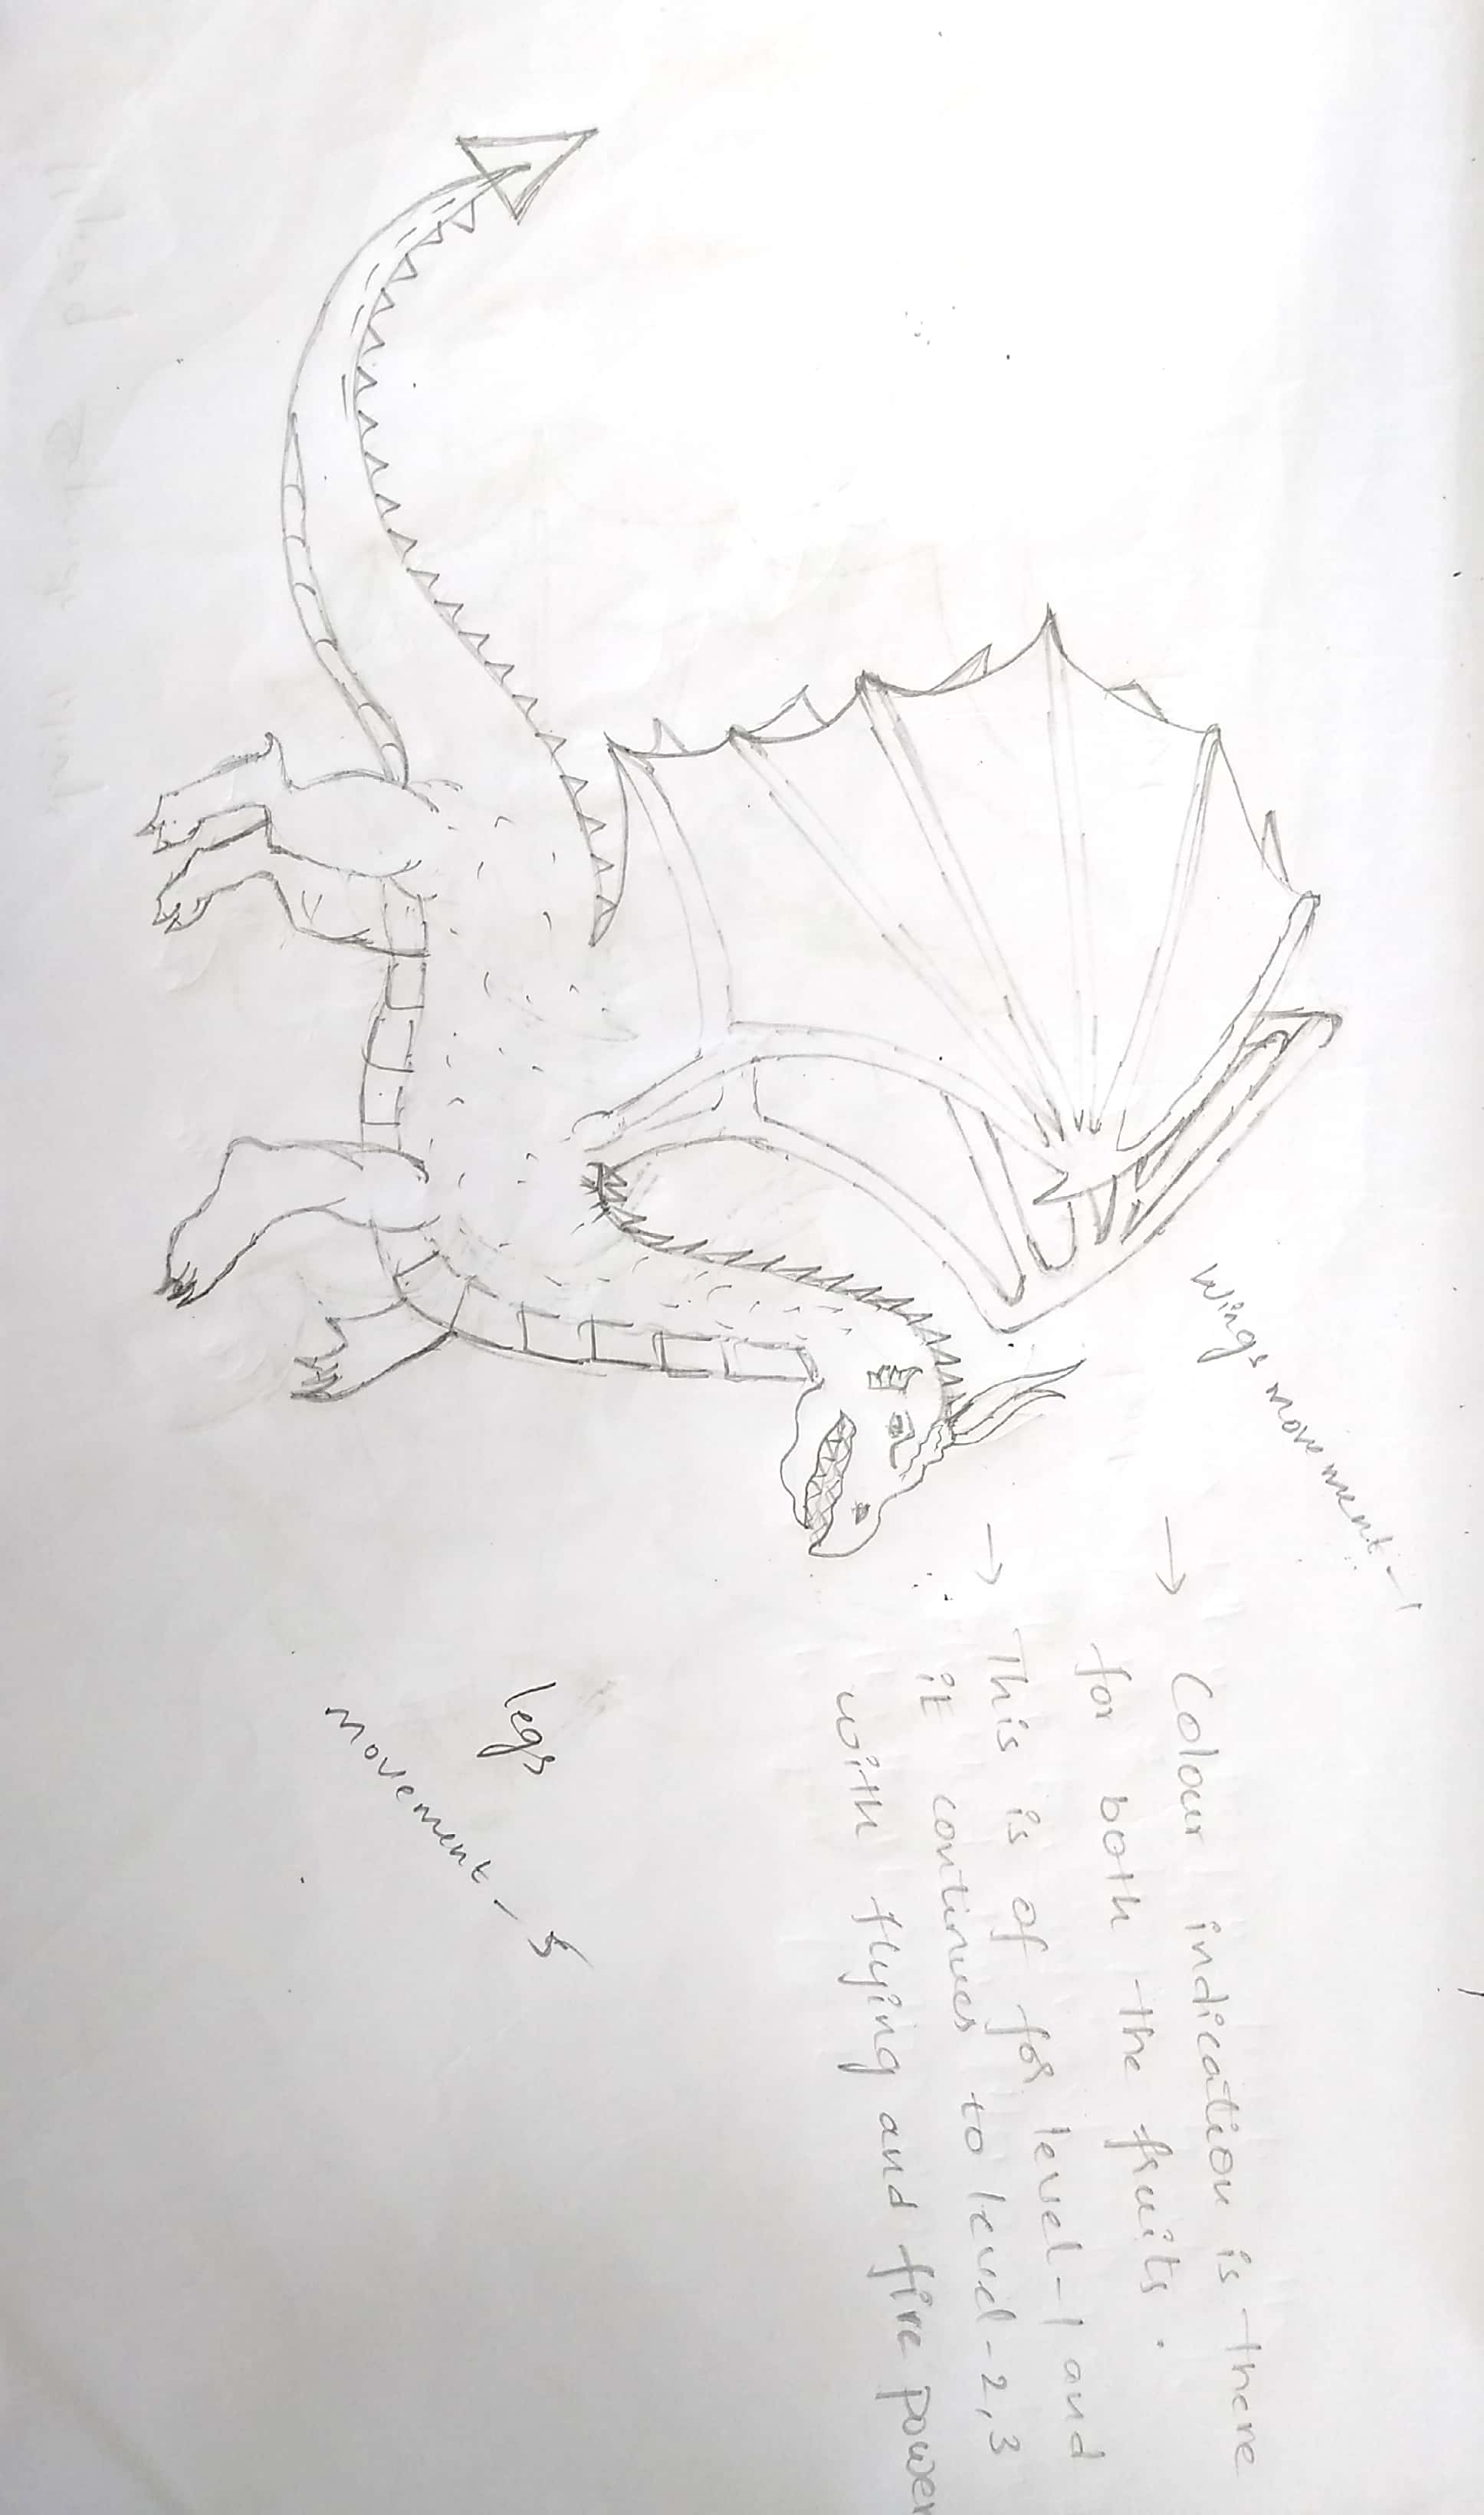 wings movement - 1
→ Colour indication is there
for both the fruits.
→ This is of for level-1 and
it continues to level-2,3
with flying and fire power
legs
movement - 5